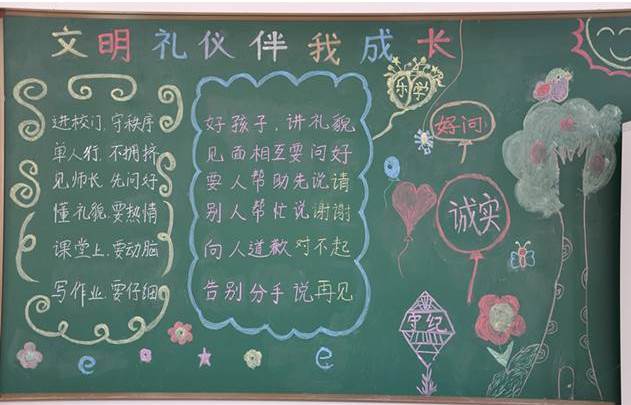 文明礼仪伴我成长
进校门,守秩序
单人行,不拥挤
见师长 先问好
懂礼貌.要热情
课堂上,要动脑
写作业.要仔细
好孩子,讲礼貌
见面相互要问好
要人帮助先说请
别人帮忙说谢谢
向人道歉对不起
告别分手说再见
乐学
好问
诚实
守纪